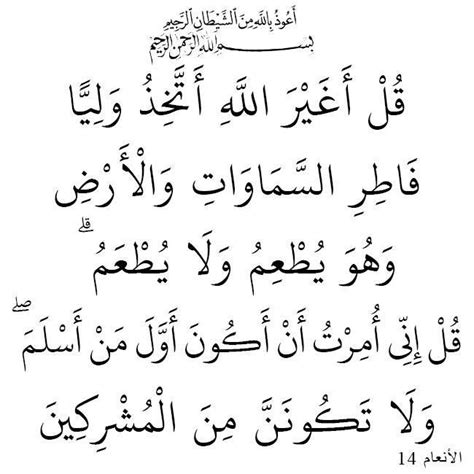 أعوذ بالله من الشيطان الرجيم
بسم الله الرحمن الرحيم
قُلْ أَغَيْرَ اللَّهِ أَتَّخِذُ وَلِيًّا
فَاطِرِ السَّمَاوَاتِ وَالْأَرْضِ
وَهُوَ يُطْعِمُ وَلَا يُطْعَمُ ۗ
قُلْ إِنِّي أُمِرْتُ أَنْ أَكُونَ أَوَّلَ مَنْ أَسْلَمَ ۖ
وَلَا تَكُونَنَّ مِنَ الْمُشْرِكِينَ
الأنعام 14